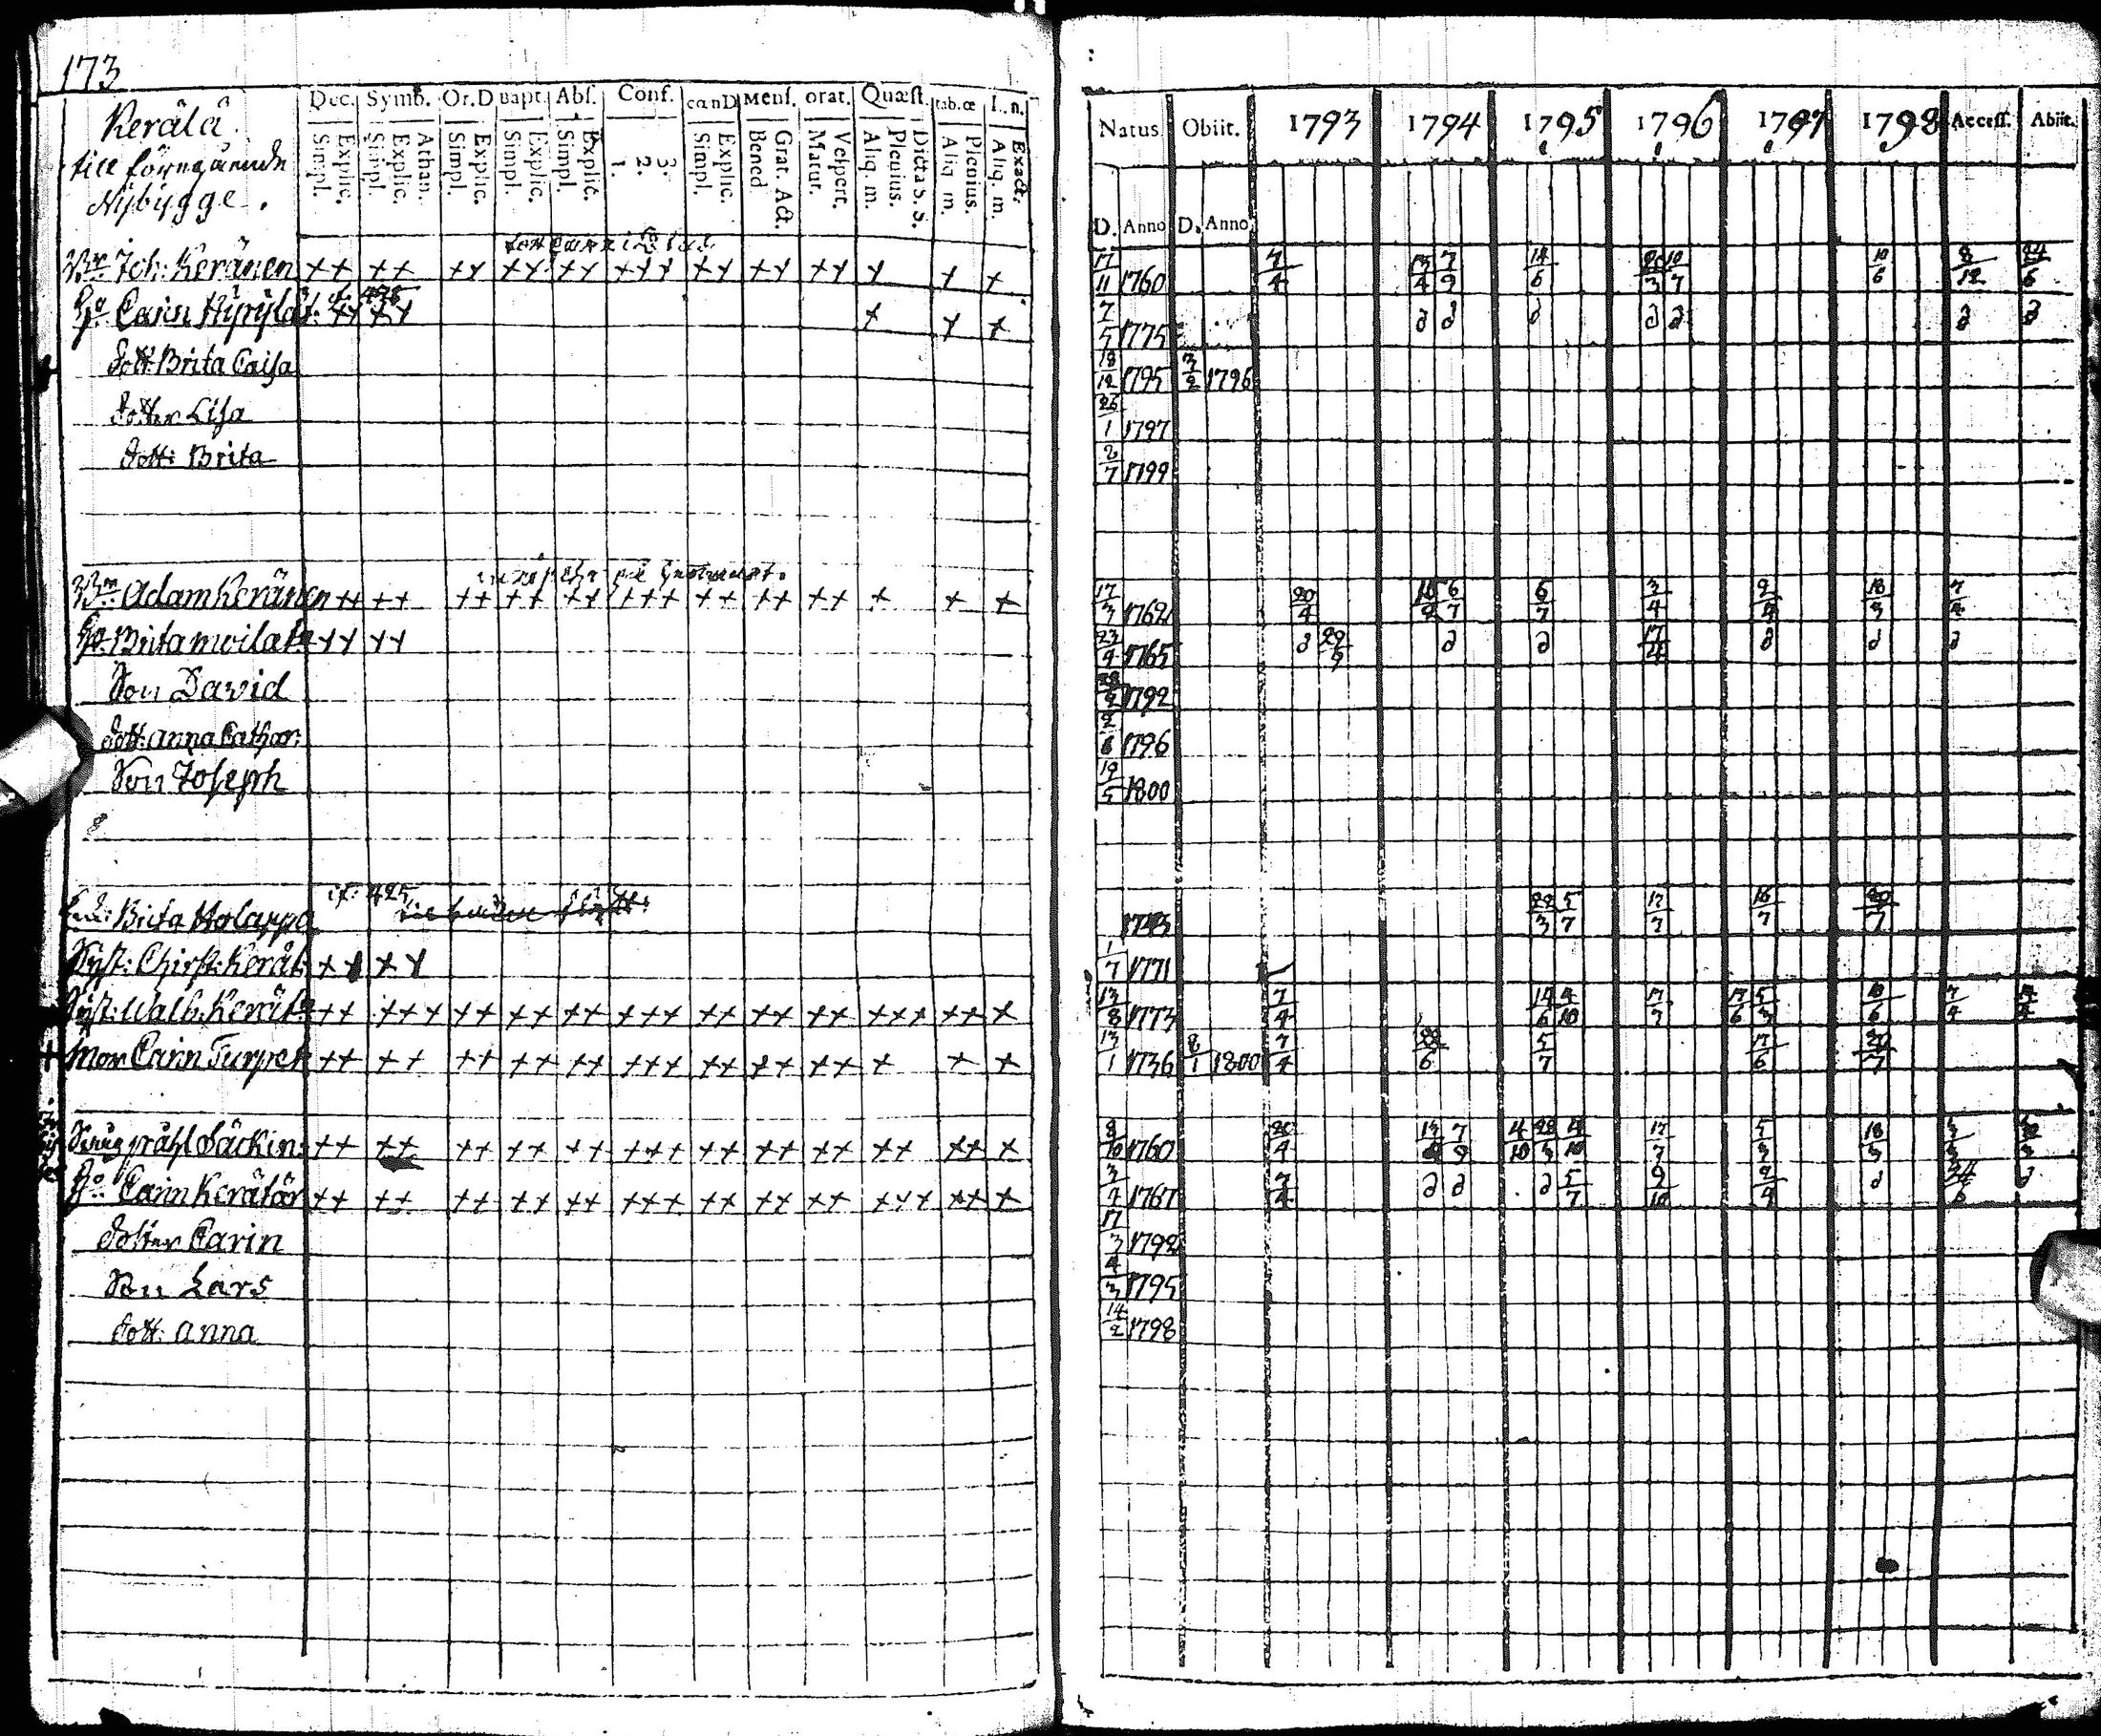 173
Kerälä
till föregående
Nybygge.
Dec. Symb. Or.D Bapt. Abs. Conf. cœnD Mens. orat. Quæst. tab.œ I..n.
Simpl. Explic. Simpl. Explic. Athan. Simpl. Explic. Simpl. Explic. Simpl. Explic. 1. 2. 3. Simpl. Explic. Bened. Grat. Act. Matut. Vespert. Aliq. m. Plenius. Dicta S. S. Aliq. m. Plenius. Aliq. m. Exact.
Natus. Obiit. 1793 1794 1795 1796 1797 1798 Access. Abiit.
D. Anno D. Anno
Joh: Keränen ++ ++ ++ ++ ++ +++ ++ ++ ++ + + + 17/11 1760 7/4 13/4 7/9 14/6 10/7 10/6 8/12 24/6
Hu. Carin HyryläT: ++ ++ + + + 7/5 1775
Dott: Brita Caisa 18/12 1795 3/2 1796
Dotter Lisa 26/1 1797
Dott: Brita 2/7 1799
Adam Keränen ++ ++ ++ ++ ++ +++ ++ ++ ++ + + + 17/3 1762 20/4 6/7 6/7 3/4 2/4 18/3 7/4
Hu. Brita Moilat: ++ ++ 23/4 1765 29/9 17/4
Son David 28/2 1792
Dott: Anna Cathar: 1796
Son Joseph 19/5 1800
8
Brita Holappa 28/3 5/7 17/7 16/7 29/7
Syst: Christ: Kerät: ++ ++ 1/7 1771
Syst: Walb: Kerät: ++ +++ ++ ++ ++ +++ ++ ++ ++ +++ ++ + 13/8 1773 7/4 14/6 4/10 17/7 17/6 5/3 10/6 7/4
+ Mor Carin Turpet ++ ++ ++ ++ ++ +++ ++ ++ ++ + + + 13/1 1736 8/1 1800 7/4 5/7 17/6 29/7
Påhl Säckin: ++ ++ ++ ++ ++ +++ ++ ++ ++ ++ ++ + 8/10 1760 20/4 7/9 4/10 28/3 4/10 17/7 5/3 18/3
Hu. Carin Kerätär ++ ++ ++ ++ ++ +++ ++ ++ ++ +++ ++ + 1767 7/4 5/7 9/10 2/4
Dotter Carin 17/3 1792
Son Lars 4/3 1795
Dott: Anna 14/2 1798